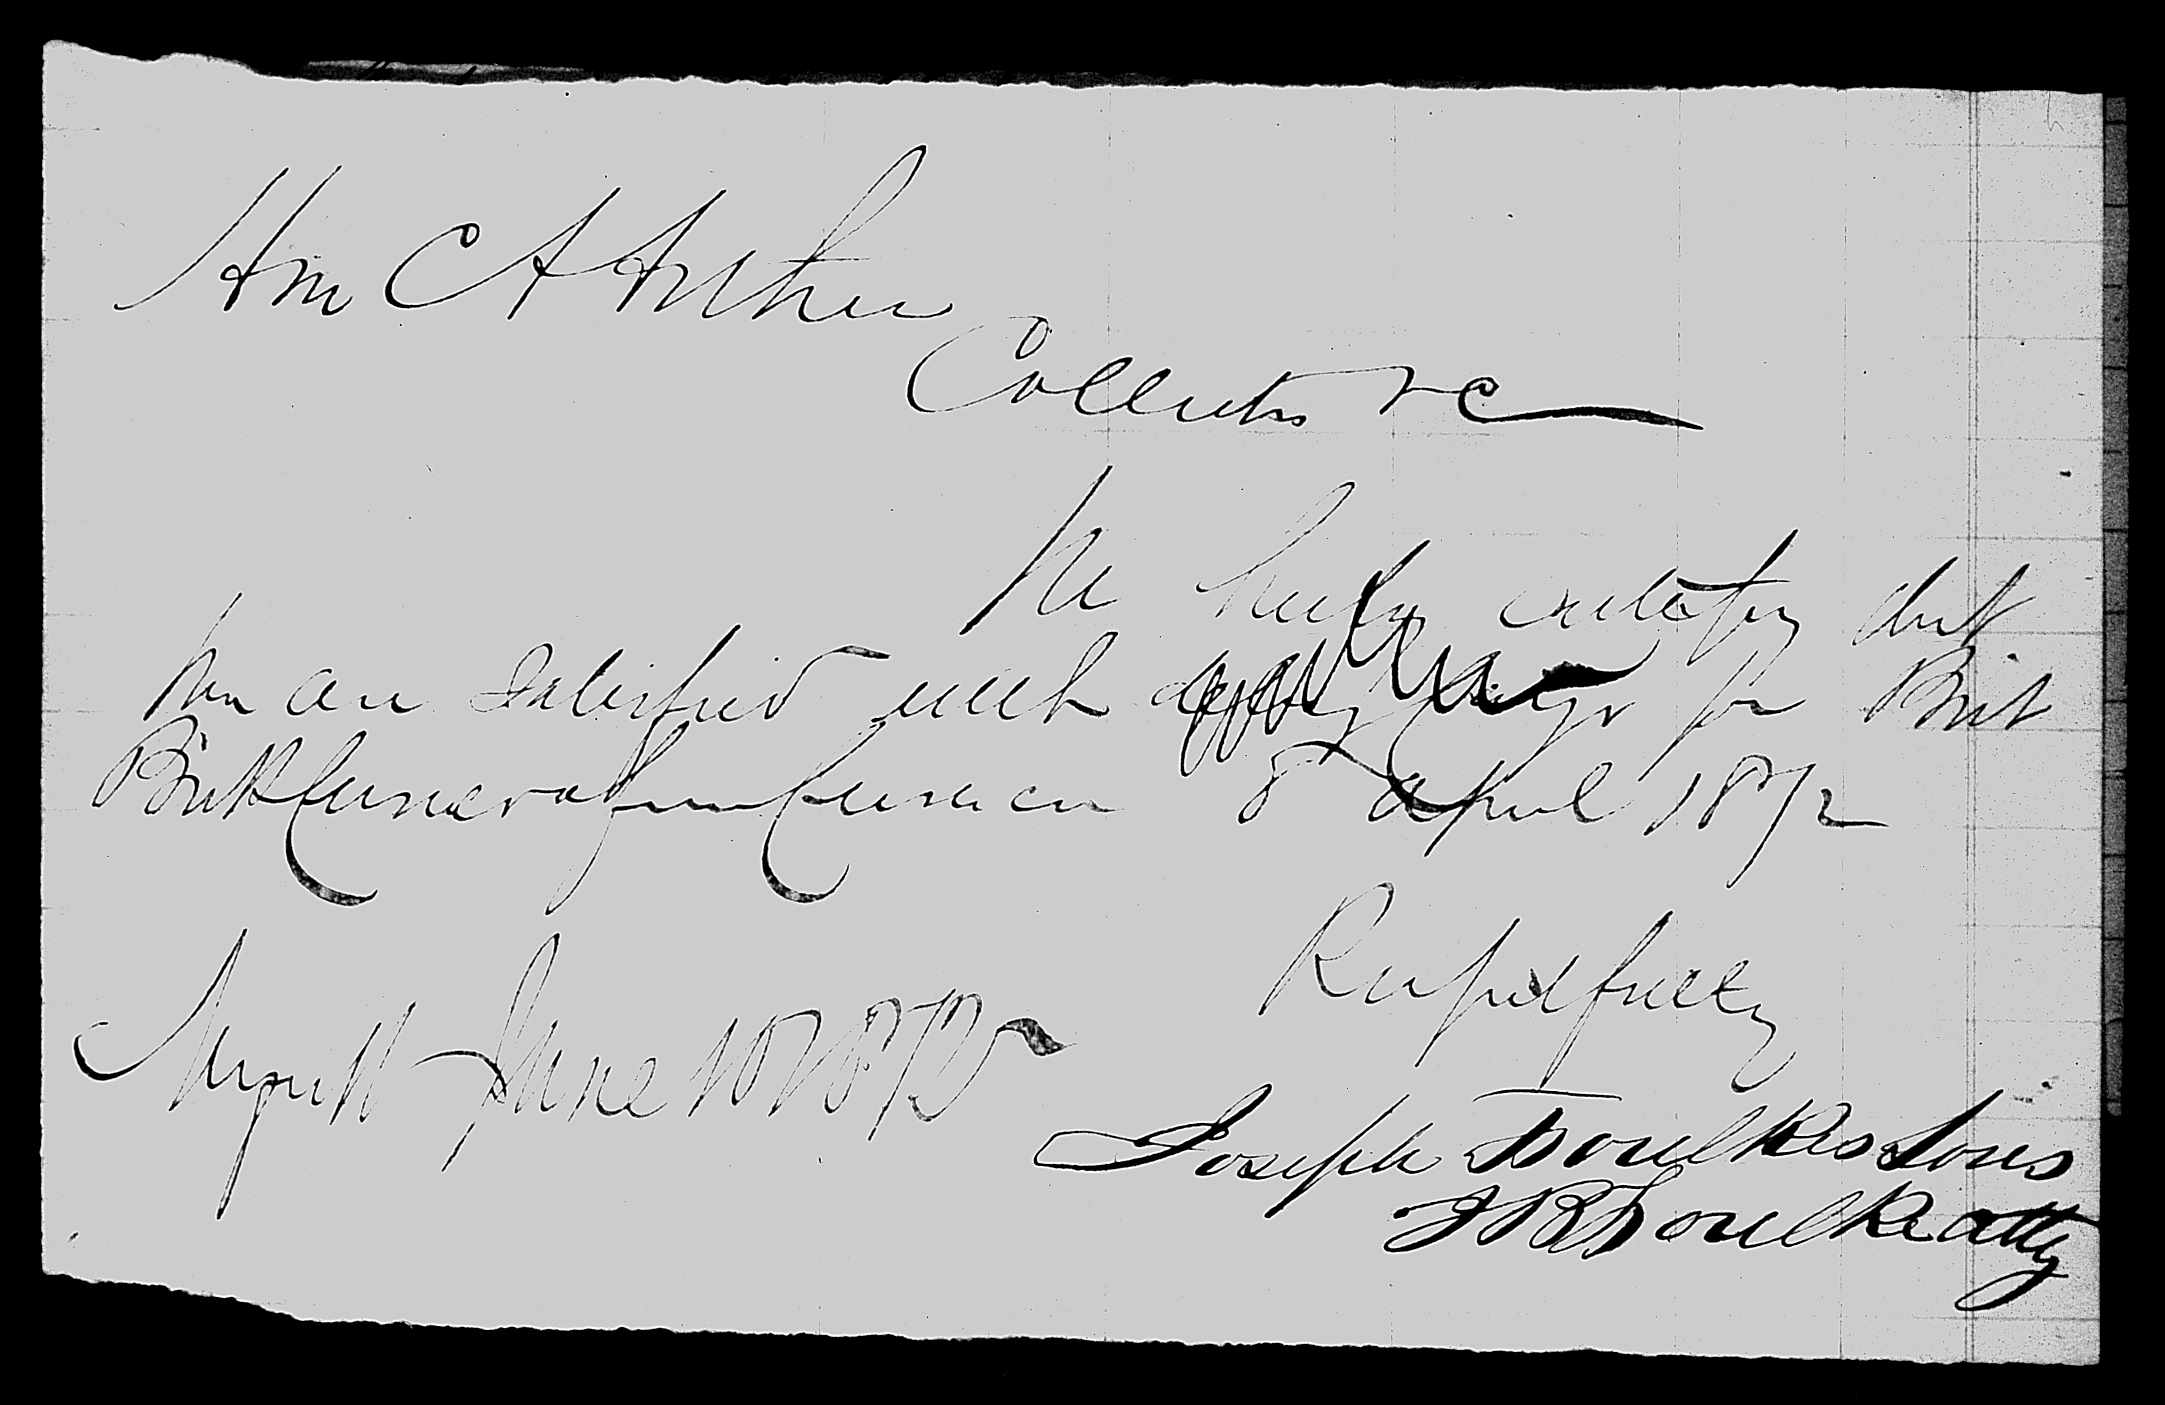 Hon C A Arthur
Collector &c
We hereby certify that
we are satisfied with for Brit
Brik from Curacao 8 April 1872
Respectfully
New York June 10 1872
Joseph Foulkes Sons
J B Foulke atty